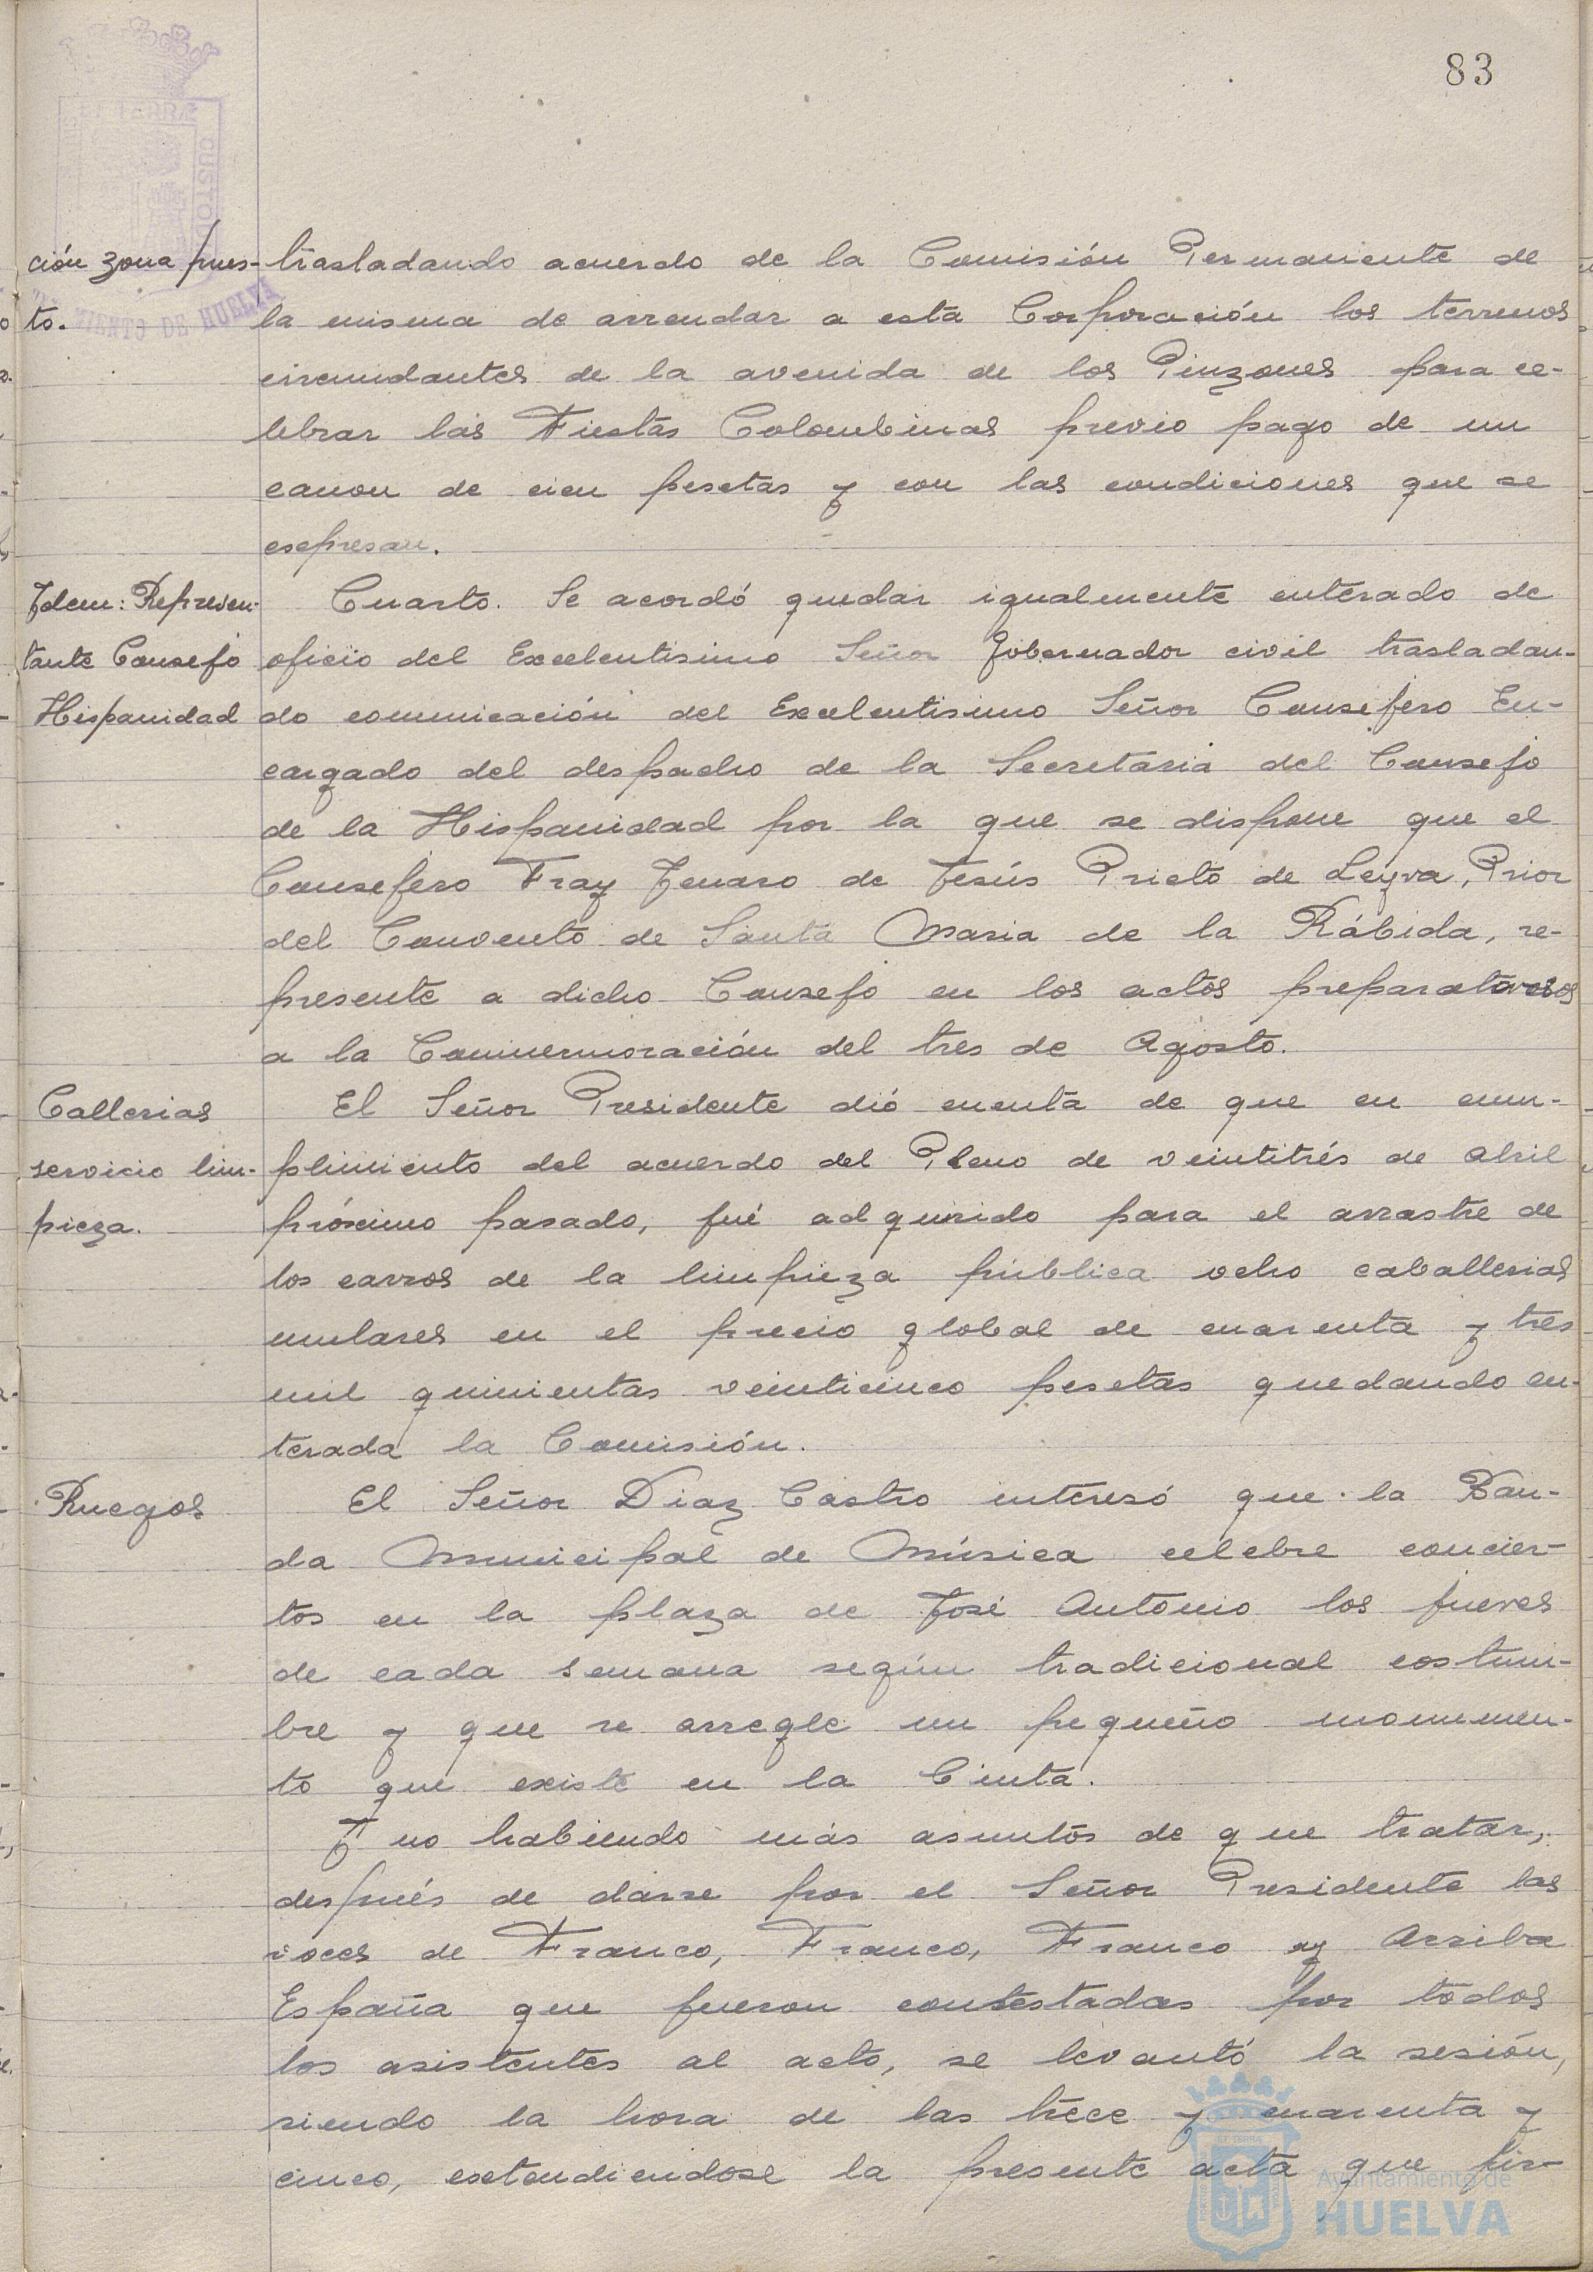 83
ción zona pues- trasladando acuerdo de la Comisión Permanente de
to. la misma de arrendar a esta Corporación los terrenos
circundantes de la avenida de los Pinzones para ce-
lebrar las Fiestas Colombinas previo pago de un
canon de cien pesetas y con las condiciones que se
expresan.
Idem: Represen- Cuarto. Se acordó quedar igualmente enterado de
tante Consejo oficio del Excelentisimo Señor Gobernador civil trasladan-
Hispanidad do comunicación del Excelentisimo Señor Consejero En-
cargado del despacho de la Secretaria del Consejo
de la Hispanidad por la que se dispone que el
Consejero Fray Jenaro de Jesús Prieto de Leyva, Prior
del Convento de Santa Maria de la Rábida, re-
presente a dicho Consejo en los actos preparatorios
a la Conmemoración del tres de Agosto.
Callerias El Señor Presidente dió cuenta de que en cum-
servicio lim- plimiento del acuerdo del Pleno de veintitrés de abril
pieza. próximo pasado, fué adquirido para el arrastre de
los carros de la limpieza pública ocho caballerias
mulares en el precio global de cuarenta y tres
mil quinientas veinticinco pesetas quedando en-
terada la Comisión.
Ruegos El Señor Diaz Castro interesó que la Ban-
da Municipal de Música celebre concier-
tos en la plaza de José Antonio los jueves
de cada semana según tradicional costum-
bre y que se arregle un pequeño monumen-
to que existe en la Cinta.
Y no habiendo más asuntos de que tratar,
después de darse por el Señor Presidente las
voces de Franco, Franco, Franco y Arriba
España que fueron contestadas por todos
los asistentes al acto, se levantó la sesión,
siendo la hora de las trece y cuarenta y
cinco, extendiendose la presente acta que fir-
Ayuntamiento de
HUELVA